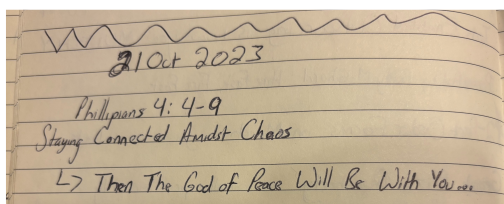 21 Oct 2023
Phillipians 4: 4-9
Staying Connected Amidst Chaos
↳ Then The God of Peace Will Be With You...